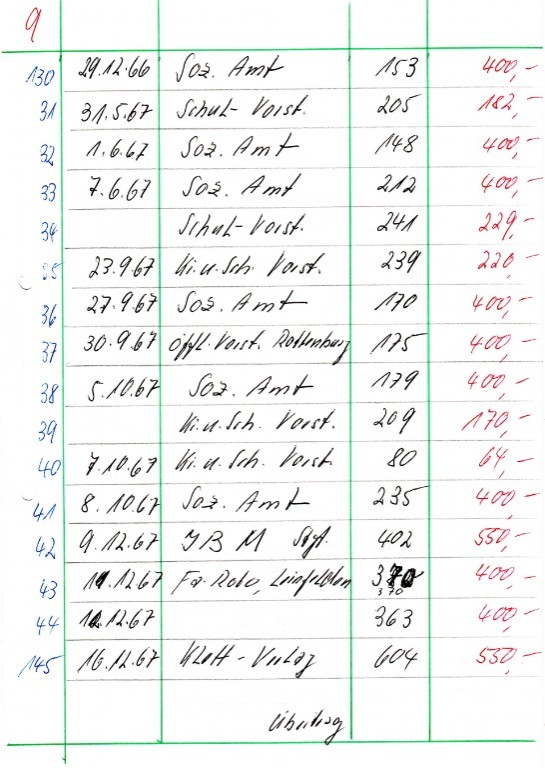 9
130 29.12.66 Soz. Amt 153 400,-
31 31.5.67 Schul-Vorst. 205 182,-
32 1.6.67 Soz. Amt 148 400,-
33 7.6.67 Soz. Amt 212 400,-
34 Schul-Vorst. 241 229,-
35 23.9.67 Ki.u.Sch. Vorst. 239 220,-
36 27.9.67 Soz. Amt 170 400,-
37 30.9.67 öffl. Vorst. Rottenburg 175 400,-
38 5.10.67 Soz. Amt 179 400,-
39 Ki.u.Sch. Vorst. 209 170,-
40 7.10.67 Ki.u.Sch. Vorst. 80 64,-
41 8.10.67 Soz. Amt 235 400,-
42 9.12.67 IBM Stgt. 402 550,-
43 11.12.67 Fa. Roto, Leinfelden 370 400,-
370
44 12.12.67 363 400,-
145 16.12.67 Klett-Verlag 604 550,-
Übertrag